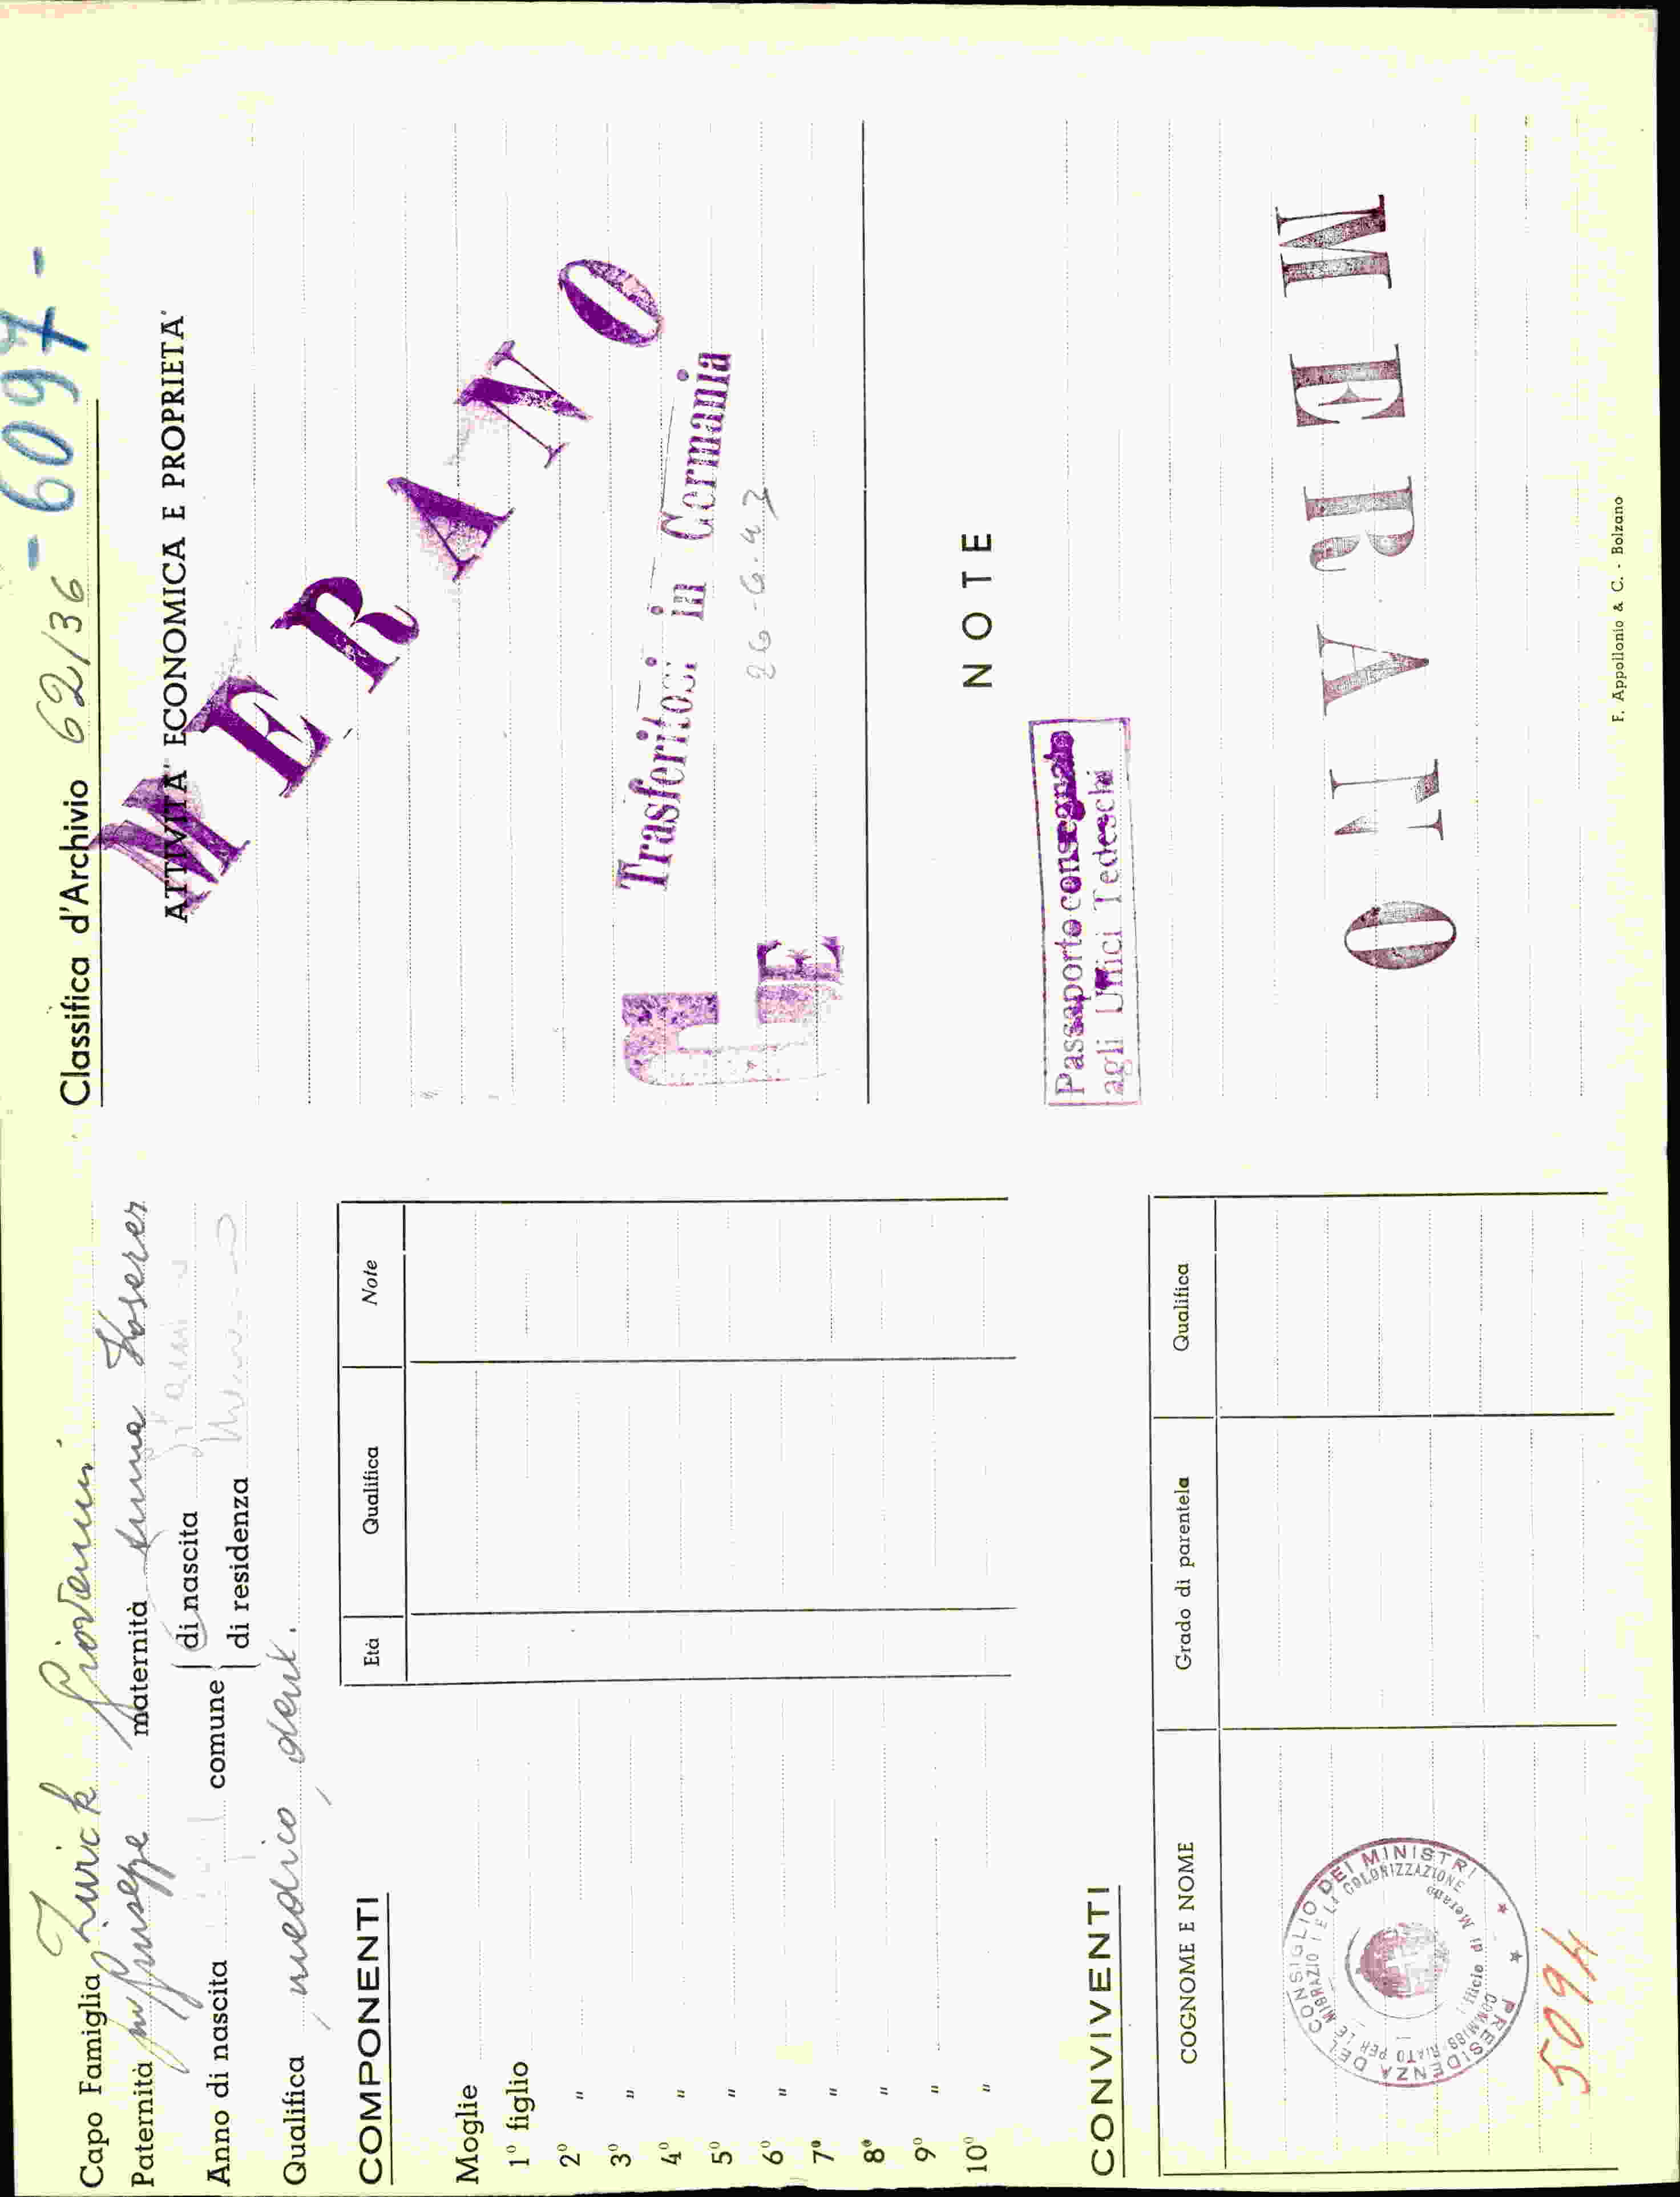 Capo Famiglia Zurick Giovanni
Paternità fu Giuseppe maternità Anna Koserer
Anno di nascita comune di nascita
di residenza
Qualifica medico dent.
COMPONENTI
Età Qualifica Note
Moglie
1º figlio
2º "
3º "
4º "
5º "
6º "
7º "
8º "
9º "
10º "
CONVIVENTI
COGNOME E NOME Grado di parentela Qualifica
PRESIDENZA DEL CONSIGLIO DEI MINISTRI
COMMISSARIATO PER LE MIGRAZIONI E LA COLONIZZAZIONE
Ufficio di Merano
5094
- 6097 -
Classifica d'Archivio 62/36
ATTIVITA' ECONOMICA E PROPRIETA'
MERANO
Trasferitosi in Germania
26-6-43
E
NOTE
Passaporto consegnato
agli Uffici Tedeschi
MERANO
F. Appollonio & C. - Bolzano